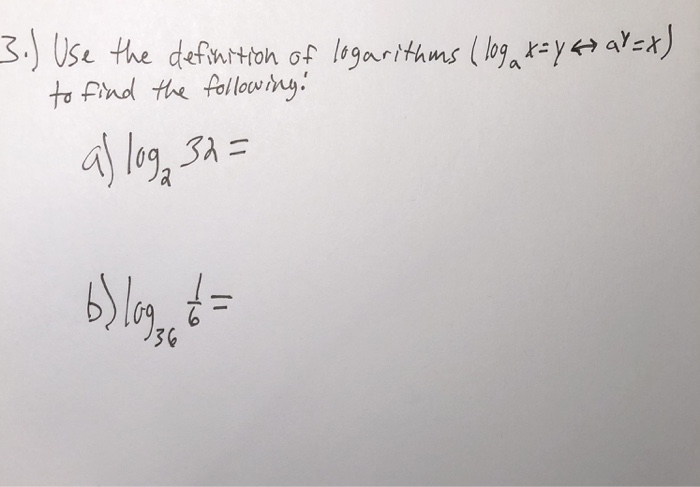 3.) Use the definition of logarithms (logₐ x=y ↔ aʸ=x)
to find the following:
a) log₂ 32 =
b) log₃₆ 1/6 =